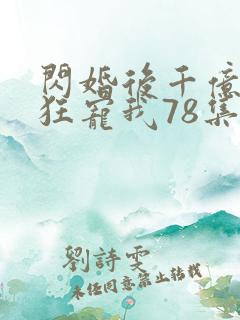 閃婚後千億
狂寵我78集
劉詩雯
未經同意禁止轉載